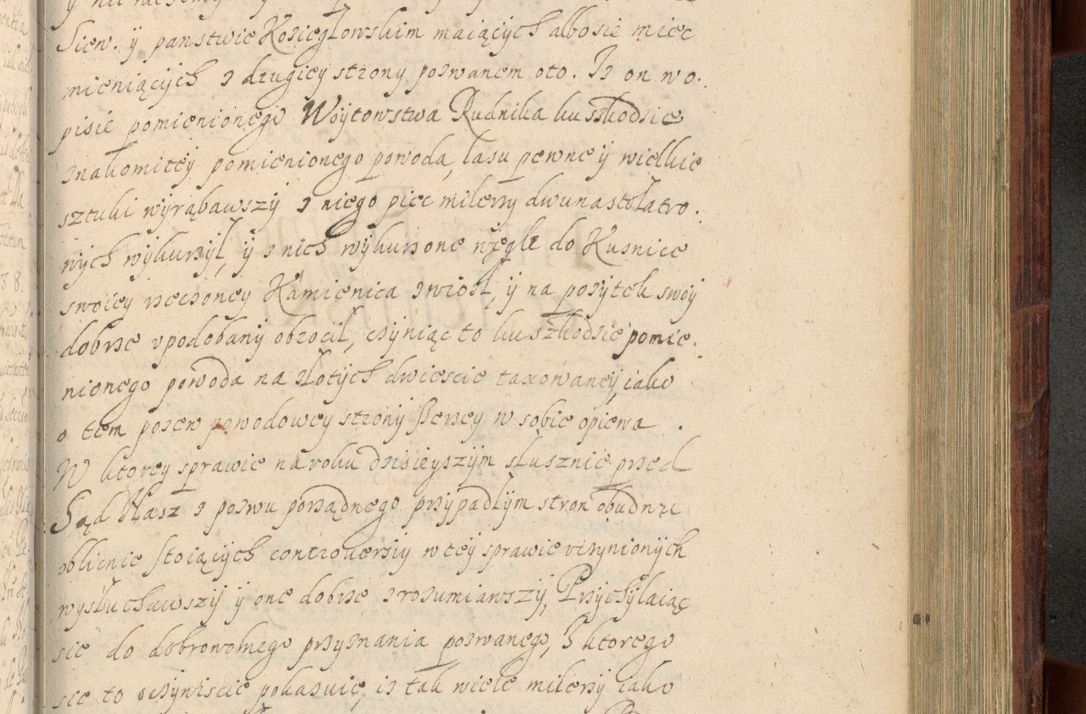 Siew. y panstwie Kozieglowskim maiących albo sie miec
mieniących z drugiey strony pozwanem oto. Iz on wo.
pisie pomienionego Woytowstwa Rudnika ku szkodzie
znakomitey pomienionego powoda, lasu pewne y wielkie
sztuki wyrąbawszy z niego piec milerzy dwunasto łatro.
wych wykurzył, y z nich wykurzone węgle do Kuznice
swoiey rzeczoney Kamienica zwiozł, y na pozytek swoy
dobrze upodobany obrocił, czyniąc to ku szkodzie pomie.
nionego powoda na złotych dwiescie taxowaney, iako
o tem pozew powodowey strony szerzey w sobie opiewa.
W ktorey sprawie na roku dzisieyszym słusznie przed
Sąd Nasz z pozwu porządnego przypadłym stron obudwu
oblicznie stoiących controversiy w tey sprawie uczynionych
wysłuchawszy y one dobrze zrozumiawszy, Przychylaiąc
sie do dobrowolnego przyznania pozwanego, z ktorego
sie to oczywiscie pokazuie, iz tak wiele milerzy iako